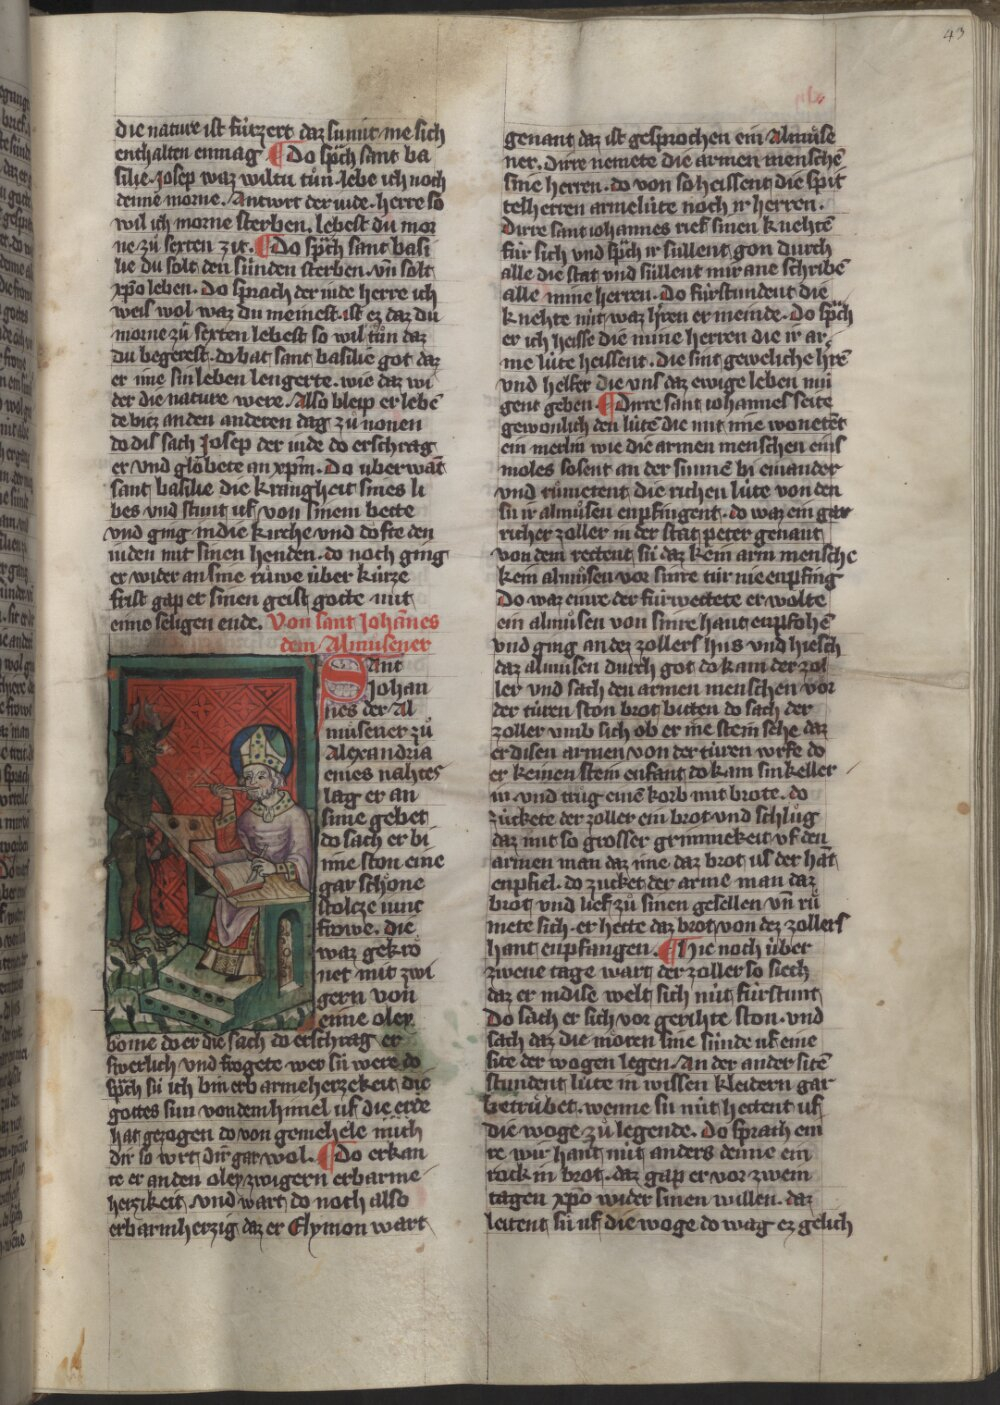 43
die nature ist fürzert daz sumit me sich
enthalten enmag ¶ Do sp̄ch sant ba
silie. Josep waz wiltu tůn. lebe ich noch
denne morne. Antwrt der iude. herre so
wil ich morne sterben. lebest du mor
ne zů sexten zit. ¶ Do sp̄ch sant basi
lie du solt den sünden sterben. vn̄ solt
xp̄o leben. Do sprach der iude herre ich
weis wol waz du meinest. ist ez daz du
morne zů sexten lebest so wil tůn daz
du begerest. do bat sant basilie got daz
er ime sin leben lengerte. wie daz wi
der die nature were. Also bleip er lebē
de bitz an den anderen dag zů nonen
do dis sach Josep der iude do erschrag
er vnd glöbete an xp̄m. Do uberwāt
sant basilie die krangheit sines li
bes vnd stunt uf von sinem bette
vnd ging in die kirche vnd döfte den
iuden mit sinen henden. do noch ging
er wider an sine růwe über kürze
frist gap er sinen geist gotte mit
eime seligen ende. Von sant Johānes
dem Almůsener
Sant
Johan
nes der Al
můsener zů
Alexandria
eines nahtes
lag er an
sime gebet
do sach er bi
ime ston eine
gar schöne
stoltze iunc
frowe. die
waz gekrö
net mit zwi
gern von
eime oley
bome do er die sach do erschrag er
swerlich vnd frogete wer sü were do
sp̄ch sü ich bin erbarmeherzekeit die
gottes sun von dem himel uf die erde
hat gezogen do von gemehele mich
dir so wrt dir gar wol. ¶ Do erkan
te er an den oley zwigern erbarme
hertzikeit. vnd wart do noch also
erbarmherzig daz er Elymon wart
genant daz ist gesprochen ein Almůse
ner. Dirre nemete die armen menschē
sine herren. do von so heissent die spit
telherren armelüte noch ir herren.
Dirre sant iohannes rief sinen knehtē
für sich vnd sp̄ch ir süllent gon durch
alle die stat vnd süllent mir ane schribē
alle mine herren. Do fürstundent die
knehte nüt waz h̄ren er meinde. Do sp̄ch
er ich heisse die mine herren die ir ar
me lüte heissent. die sint geweliche h̄rē
vnd helfer die vns daz ewige leben mü
gent geben ¶ Dirre sant iohannes seite
gewonlich den lüte die mit ime wonetēt
ein merlin wie die armen menschen eins
moles sosent an der sunnē bi einander
vnd růmetent die richen lüte von den
sü ir almůsen enpfingent. do waz ein gar
richer zoller in der stat peter genant
von dem rettent sü daz kein arm mensche
kein almůsen vor sinre tür nie enpfing
Do waz einre der fürwettete er wolte
ein almůsen von sinre hant enpfohē
vnd ging an dez zollers hus vnd hiesch
daz almůsen durch got do kam der zol
ler vnd sach den armen menschen vor
der türen ston brot bitten do sach der
zoller vmb sich ob er ine stein sehe daz
er disen armen von der türen wrfe do
er keinen stein enfant do kam sin keller
in. vnd trůg einē korb mit brote. do
zückete der zoller ein brot vnd schlůg
daz mit so grosser grimmekeit vf den
armen man daz ime daz brot us der hāt
enpfiel. do zucket der arme man daz
brot vnd lief zů sinen gesellen vn̄ rů
mete sich. er hette daz brot von dez zollers
hant enpfangen. ¶ Hie noch über
zwene tage wart der zoller so siech
daz er in dise welt sich nüt fürstunt
Do sach er sich vor gerihte ston. vnd
sach daz die moren sine sünde uf eine
site der wogen legen. An der ander sitē
stundent lüte in wissen kleidern gar
betrübet. wenne sü nüt hettent uf
die woge zů legende. Do sprach ein
re wir hant nüt anders denne ein
rockin brot. daz gap er vor zwein
tagen xp̄o wider sinen willen. daz
leitent sü uf die woge do wag ez gelich